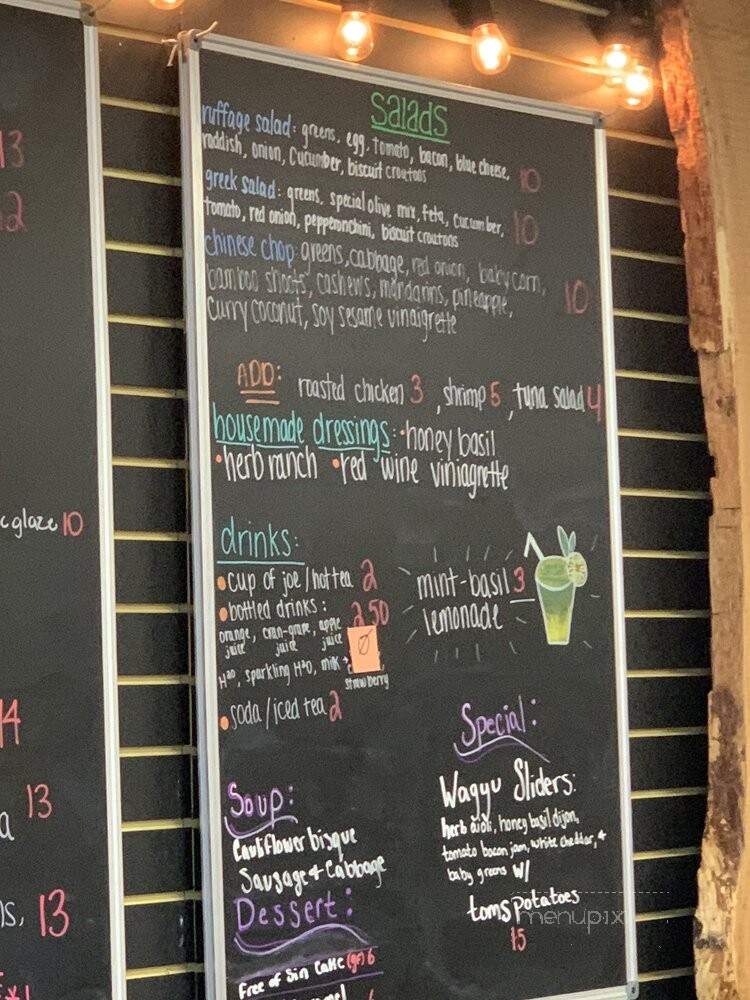 Salads
ruffage salad: greens, egg, tomato, bacon, blue cheese,
raddish, onion, cucumber, biscuit croutons 10
greek salad: greens, special olive mix, feta, cucumber,
tomato, red onion, pepperonchini, biscuit croutons 10
chinese chop: greens, cabbage, red onion, baby corn,
bamboo shoots, cashews, mandarins, pineapple, 10
curry coconut, soy sesame vinaigrette
ADD: roasted chicken 3, shrimp 5, tuna salad 4
housemade dressings: •honey basil
•herb ranch •red wine viniagrette
drinks:
•cup of joe/hot tea 2
•bottled drinks: 2.50
orange juice, cran-grape juice, apple juice
H²O, sparkling H²O, milk
strawberry
•soda/iced tea 2
mint-basil 3
lemonade
Special:
Wagyu Sliders:
herb aioli, honey basil dijon,
tomato bacon jam, white cheddar, +
baby greens W/
toms potatoes
15
Soup:
Cauliflower bisque
Sausage + Cabbage
Dessert:
Free of Sin Cake (gf) 6
13
c glaze 10
14
13
13
menupix